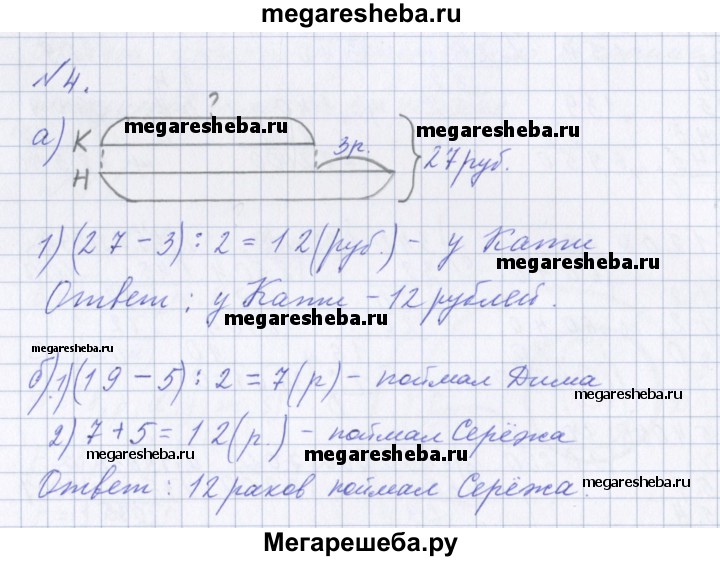 megaresheba.ru
№4.
?
а) К megaresheba.ru 3р. megaresheba.ru
Н 27 руб.
1) (27-3):2=12(руб.) - у Кати
megaresheba.ru
Ответ: у Кати - 12 рублей.
megaresheba.ru
megaresheba.ru
б) 1) (19-5):2=7(р) - поймал Дима
megaresheba.ru
2) 7+5=12(р.) - поймал Серёжа
megaresheba.ru megaresheba.ru
Ответ: 12 раков поймал Серёжа.
megaresheba.ru
Мегарешеба.ру